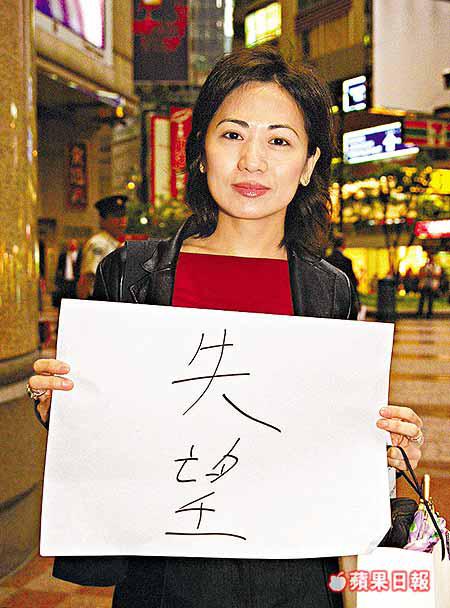 失
望
蘋果日報